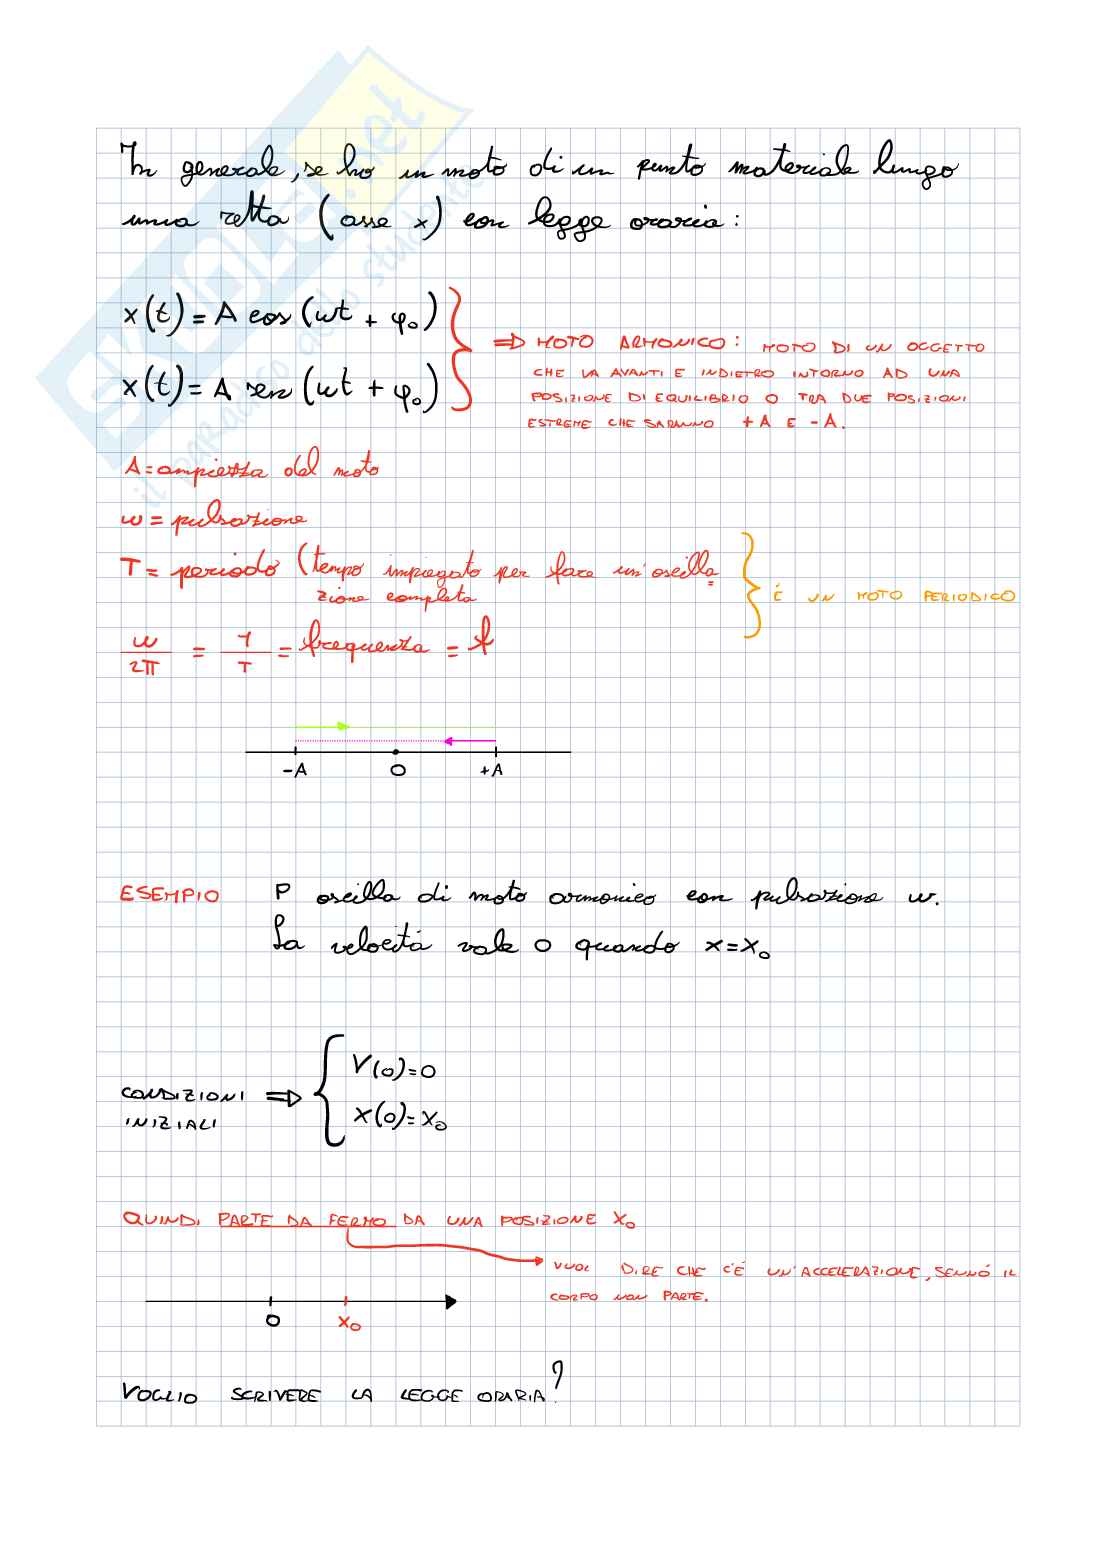 In generale, se ho un moto di un punto materiale lungo
una retta (asse x) con legge oraria:
x(t) = A cos (ωt + φ₀)
x(t) = A sen (ωt + φ₀)
⇒ MOTO ARMONICO: MOTO DI UN OGGETTO
CHE VA AVANTI E INDIETRO INTORNO AD UNA
POSIZIONE DI EQUILIBRIO O TRA DUE POSIZIONI
ESTREME CHE SARANNO +A E -A.
A = ampiezza del moto
ω = pulsazione
T = periodo (tempo impiegato per fare un'oscilla=
zione completa
È UN MOTO PERIODICO
ω/2π = 1/T = frequenza = f
-A O +A
ESEMPIO P oscilla di moto armonico con pulsazione ω.
La velocità vale 0 quando x=x₀
CONDIZIONI INIZIALI ⇒
V(0)=0
x(0)=x₀
QUINDI PARTE DA FERMO DA UNA POSIZIONE X₀
VUOL DIRE CHE C'È UN'ACCELERAZIONE, SENNÓ IL
CORPO NON PARTE.
O X₀
VOGLIO SCRIVERE LA LEGGE ORARIA?
SKUOLA.net
il paradiso dello studente